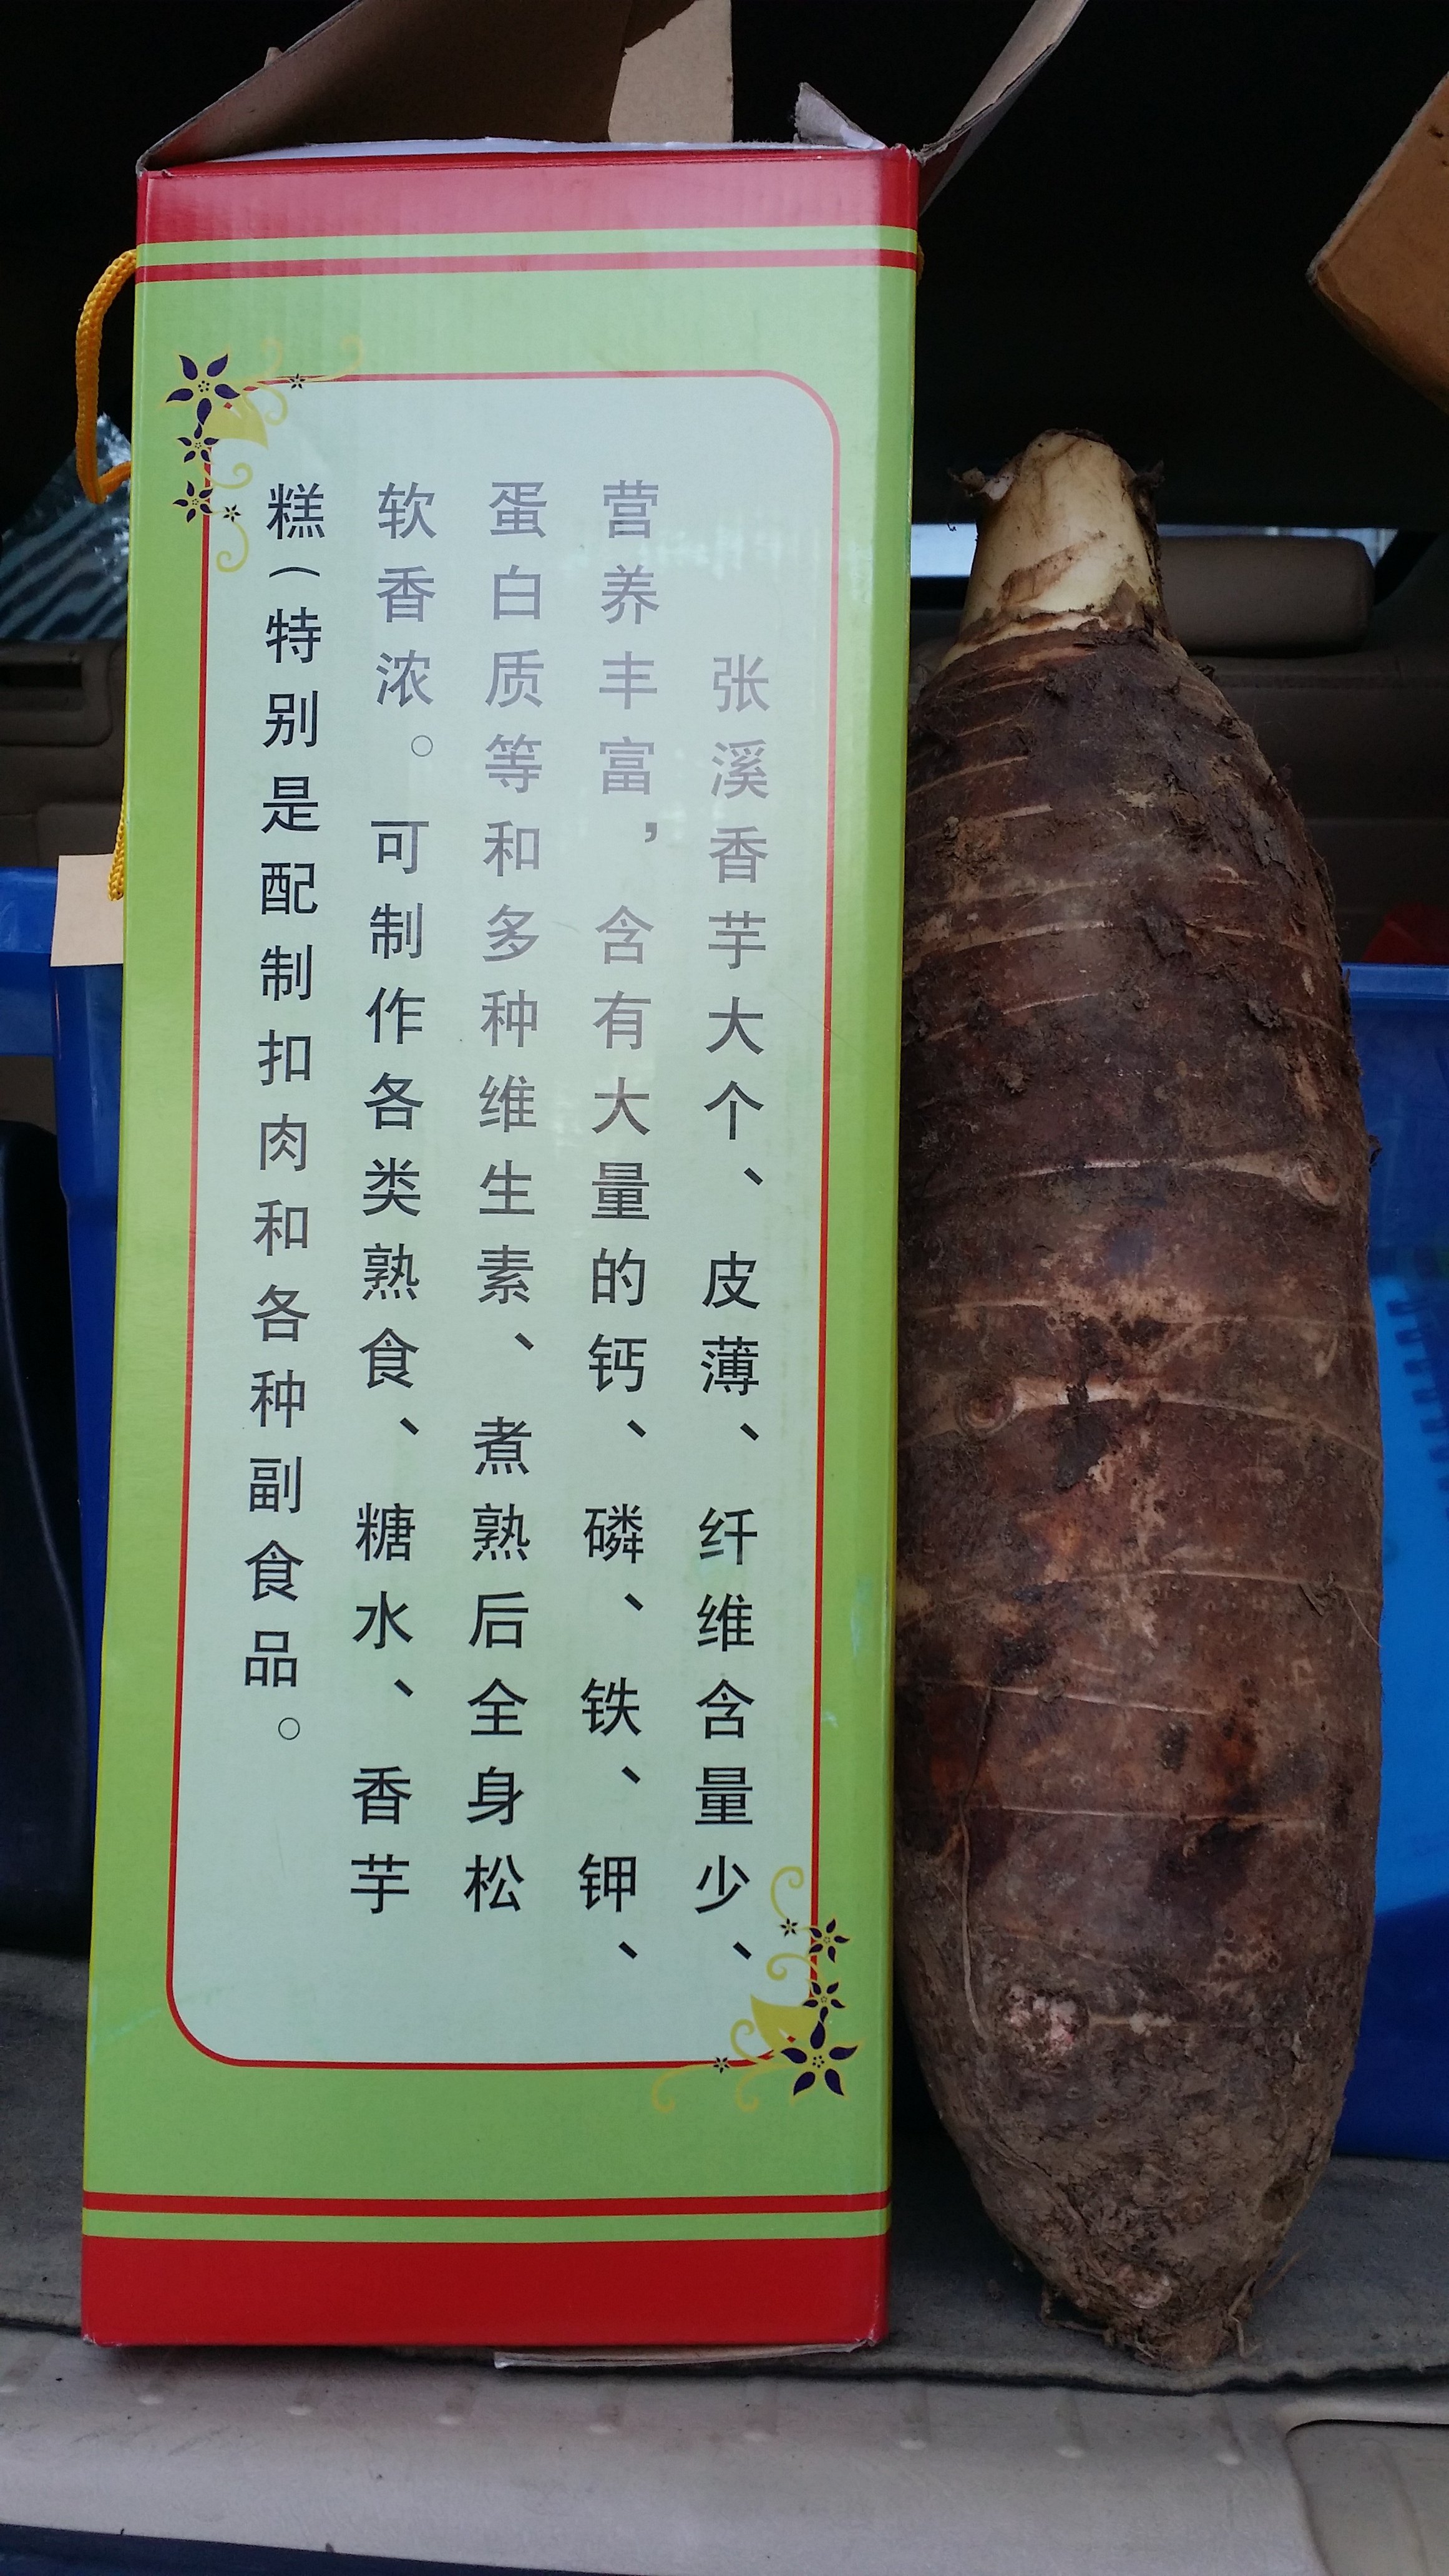 张溪香芋大个、皮薄、纤维含量少、
营养丰富，含有大量的钙、磷、铁、钾、
蛋白质等和多种维生素、煮熟后全身松
软香浓。可制作各类熟食、糖水、香芋
糕（特别是配制扣肉和各种副食品。